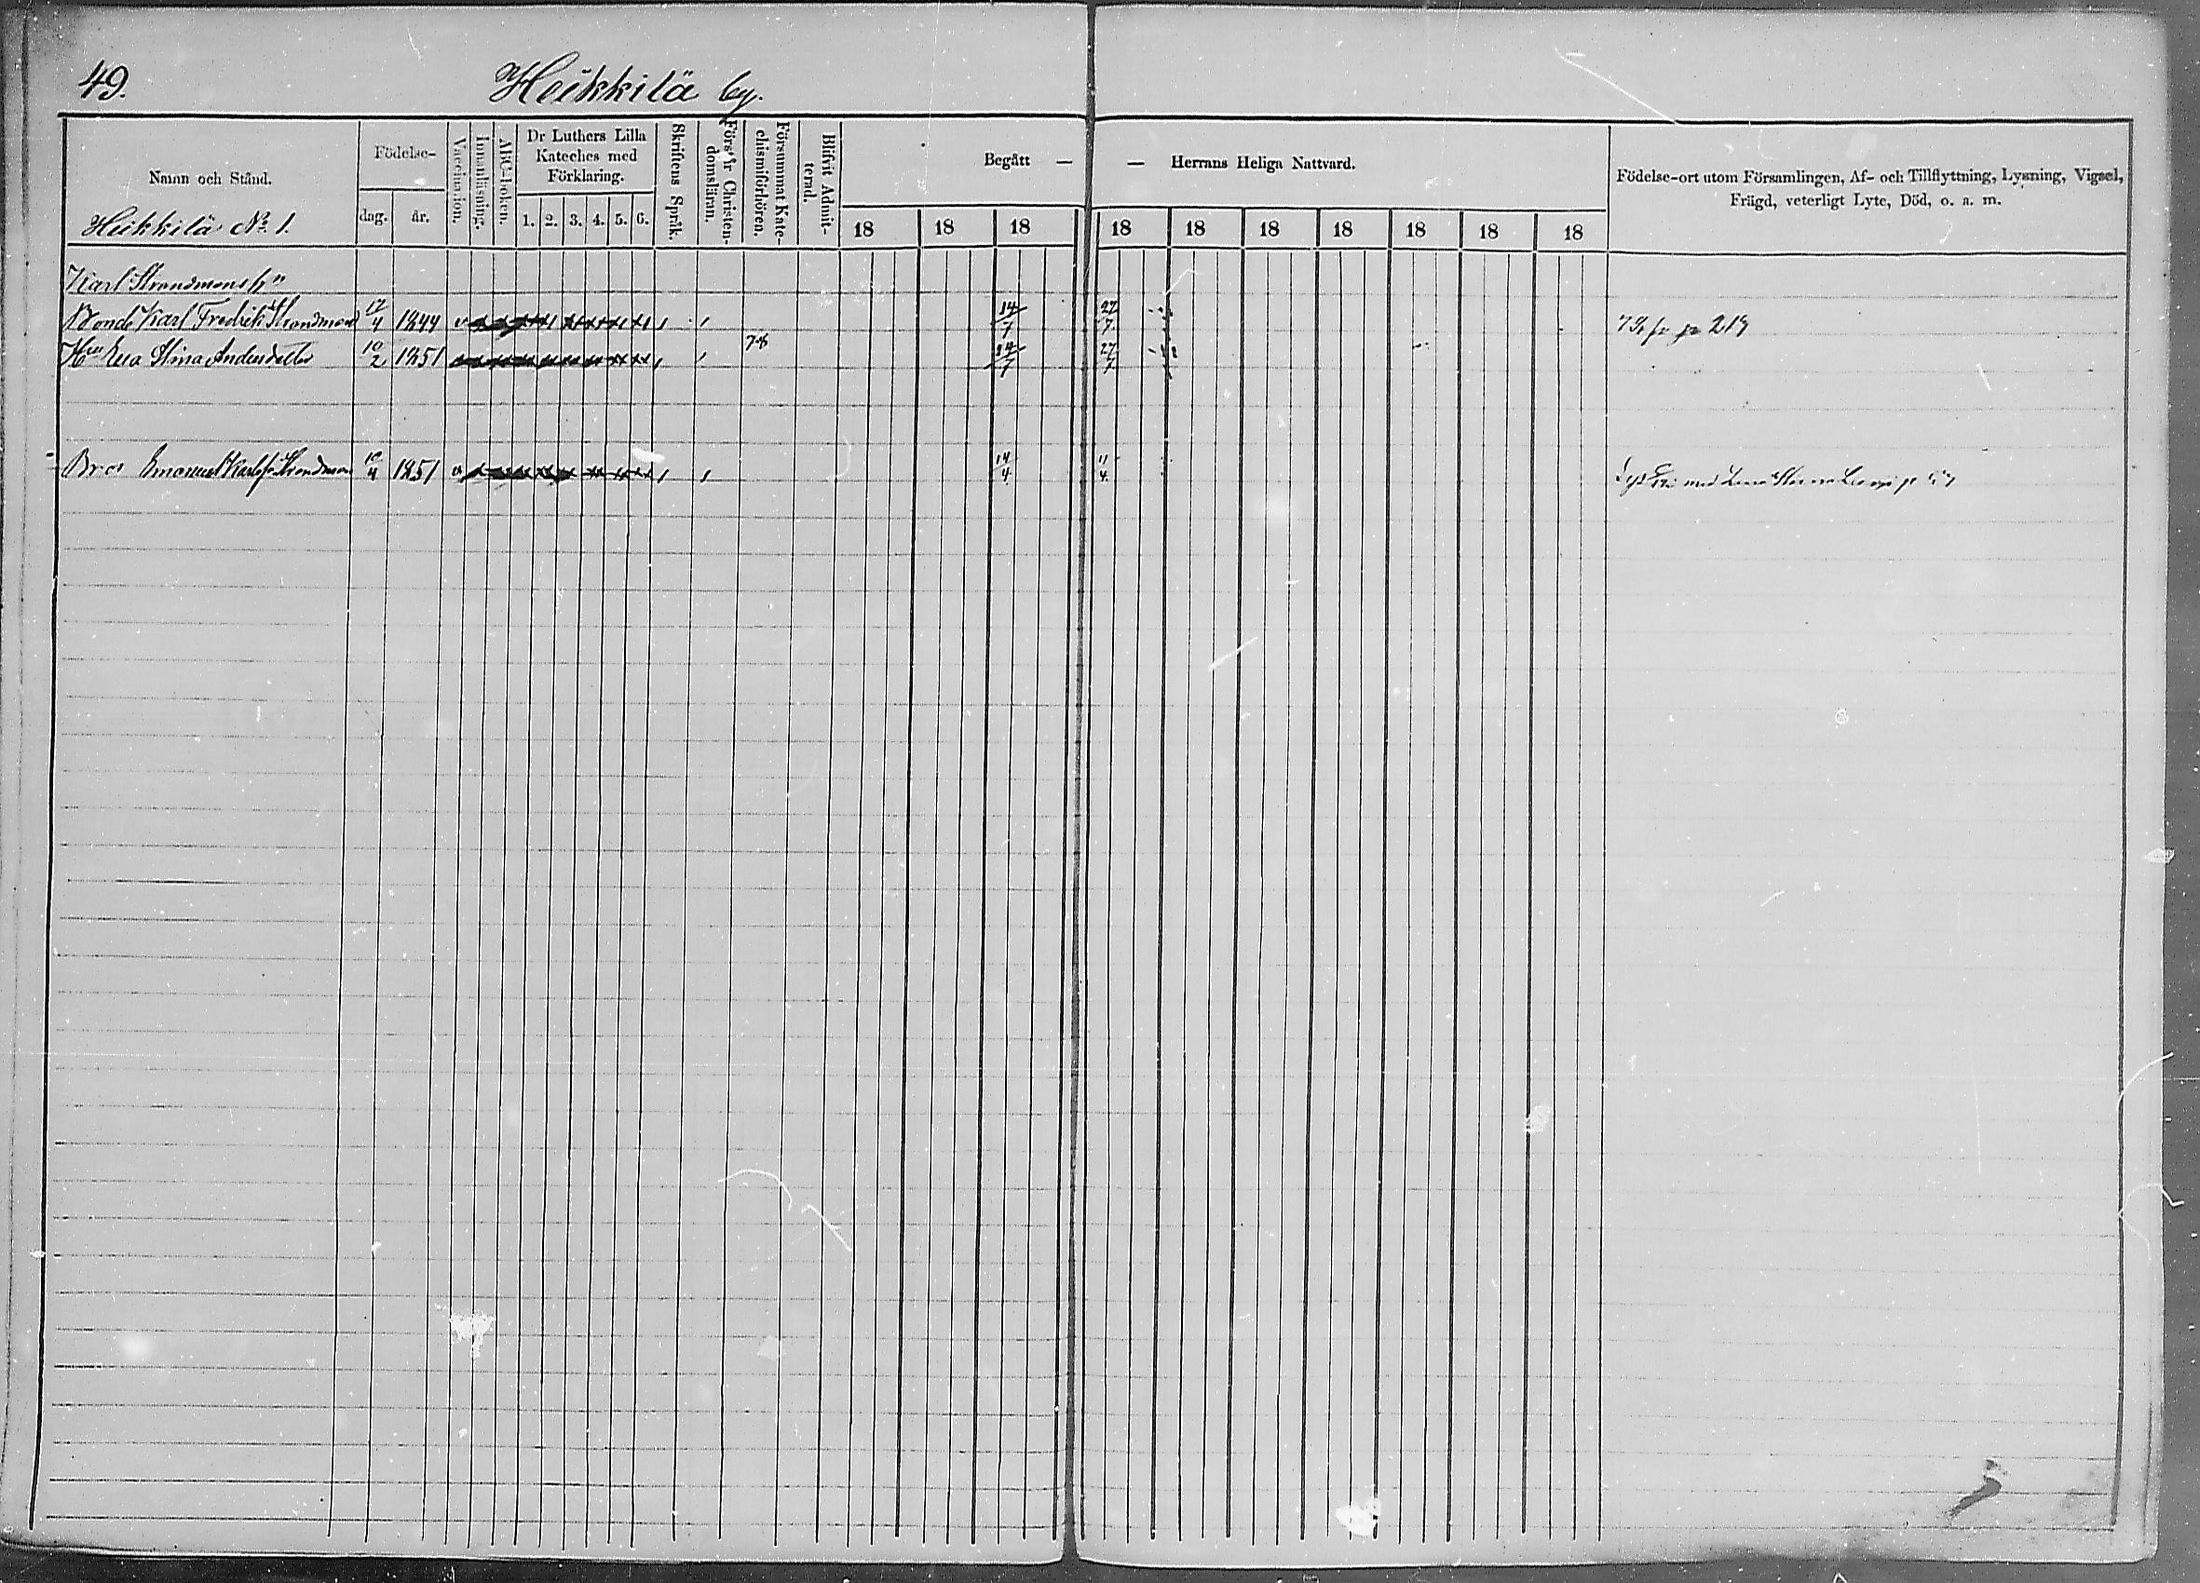 49.
Heikkilä by.
Namn och Stånd.
Heikkilä No 1.
Födelse-
dag.
år.
Vaccination.
Innanläsning.
ABC-boken.
Dr Luthers Lilla
Kateches med
Förklaring.
1. 2. 3. 4. 5. 6.
Skriftens Språk.
Förstår Christen-
domsläran.
Försummat Kate-
chismiförhören.
Blifvit Admit-
terad.
Begått — — Herrans Heliga Nattvard.
18 18 18 18 18 18 18 18 18 18
Födelse-ort utom Församlingen, Af- och Tillflyttning, Lysning, Vigsel,
Frägd, veterligt Lyte, Död, o. a. m.
Karl Strandmans
Bonde Karl Fredrik Strandman 17/4 1844 14/7 27/7 219
Hu Eva Stina Andersdotter 10/2 1851 78 14/7 27/7
Bror Emanuel Karlss. Strandman 10/4 1851 14/4 11/4 med Lena Stina